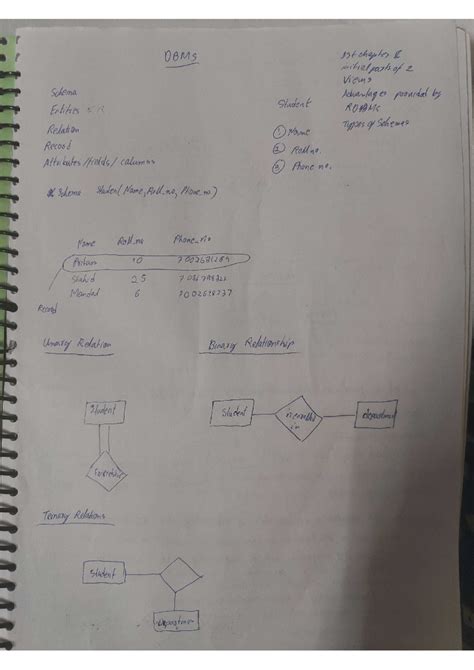 DBMS
1st chapter &
initial parts of 2
Views
Advantages provided by
Types of Schemas
Schema
Entities
Relation
Record
Attributes/fields/columns
Student
① Name
② Roll.no.
③ Phone no.
Schema Student(Name, Roll.no, Phone.no)
Name Roll.no Phone.no
10
25
6
Record
Unary Relation
Binary Relationship
Student
Student
in enrolled
in
department
Ternary Relations
Student
Department